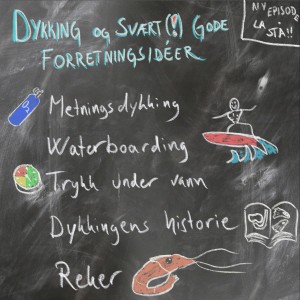 DYKKING OG SVÆRT(!) GODE
FORRETNINGSIDÉER
MY EPISODE
LA
STÅ!!
Metningsdykking
Waterboarding
Trykk under vann
Dykkingens historie
Reker